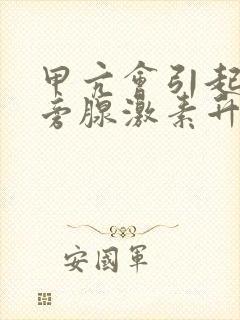 甲亢會引起
旁腺激素升
安國軍